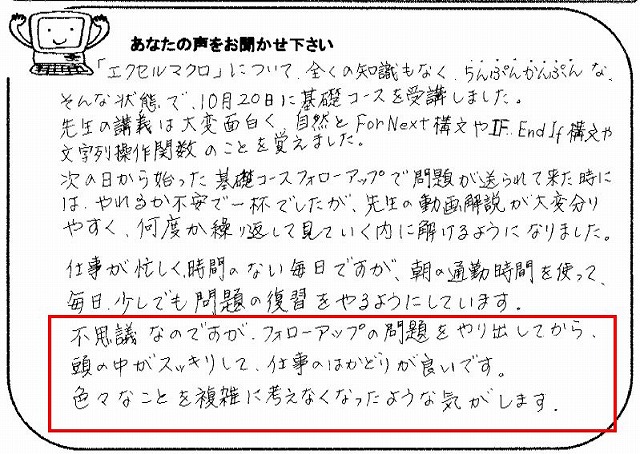 あなたの声をお聞かせ下さい
「エクセルマクロ」について、全くの知識もなく、ちんぷんかんぷんな、
そんな状態で、10月20日に基礎コースを受講しました。
先生の講義は大変面白く、自然とFor Next構文やIF. End If構文や
文字列操作関数のことを覚えました。
次の日から始った基礎コースフォローアップで問題が送られて来た時に
は、やれるか不安で一杯でしたが、先生の動画解説が大変分り
やすく、何度か繰り返して見ていく内に解けるようになりました。
仕事が忙しく、時間のない毎日ですが、朝の通勤時間を使って、
毎日、少しでも問題の復習をやるようにしています。
不思議なのですが、フォローアップの問題をやり出してから、
頭の中がスッキリして、仕事のはかどりが良いです。
色々なことを複雑に考えなくなったような気がします.